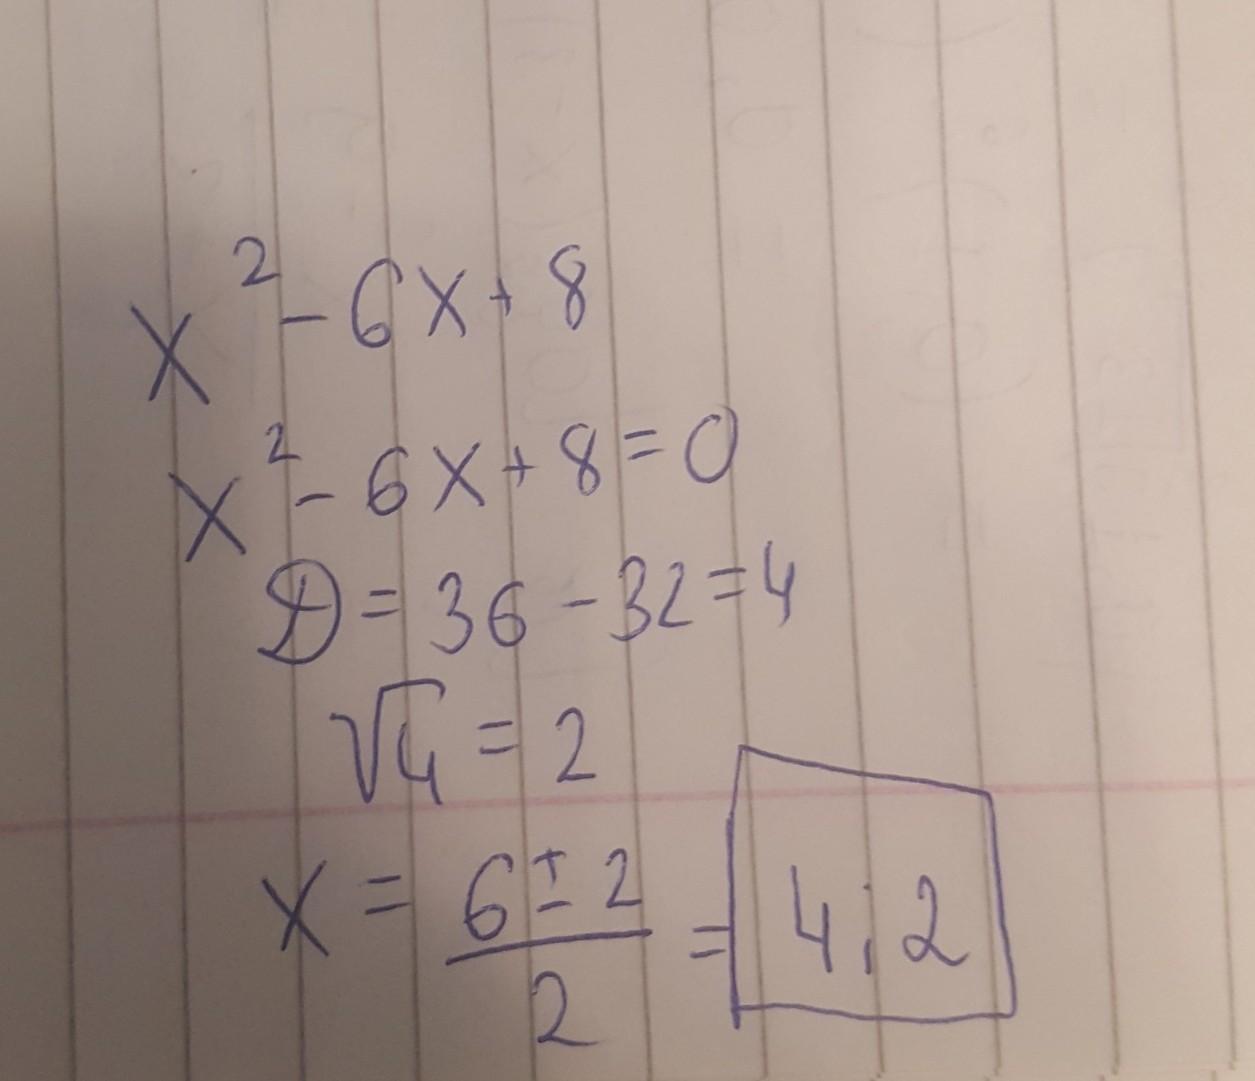 x² - 6x + 8
x² - 6x + 8 = 0
D = 36 - 32 = 4
√4 = 2
x = (6 ± 2)/2 = 4; 2